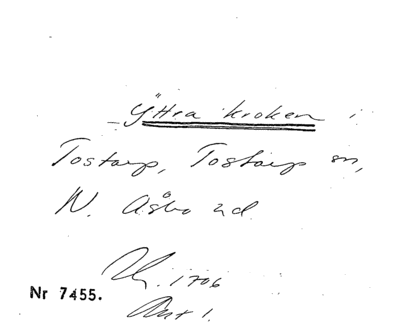 Yttra kroken i
Tostarp, Tostarp sn,
N. Åsbo hd
1706
Nr 7455.